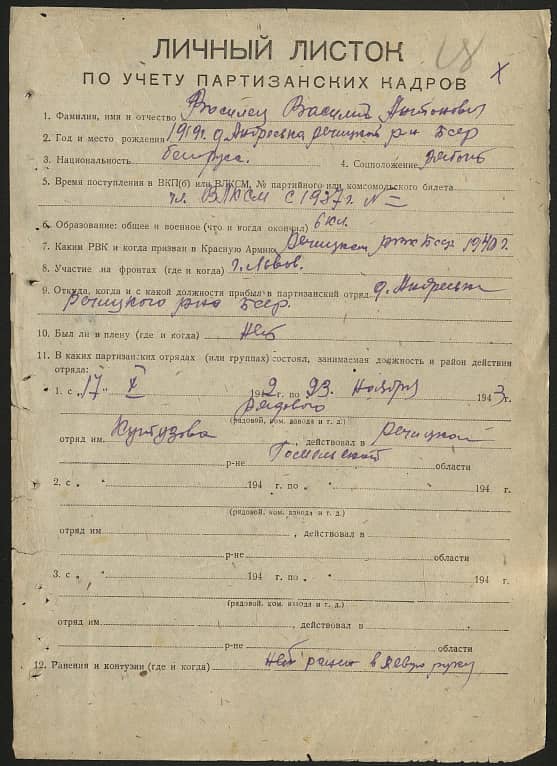 ЛИЧНЫЙ ЛИСТОК
ПО УЧЕТУ ПАРТИЗАНСКИХ КАДРОВ
1. Фамилия, имя и отчество Василец Василий Антонович
2. Год и место рождения 1919 г. д. Андреевка Речицкой р-н Бсср
3. Национальность белорус. 4. Соцположение рабочь
5. Время поступления в ВКП(б) или ВЛКСМ, № партийного или комсомольского билета
чл. ВЛКСМ с 1937 г. № —
6. Образование: общее и военное (что и когда окончил) 6 кл.
7. Каким РВК и когда призван в Красную Армию Речицким рвк Бсср 1940 г.
8. Участие на фронтах (где и когда) г. Львов.
9. Откуда, когда и с какой должности прибыл в партизанский отряд д. Андреевка
Речицкого р-на Бсср.
10. Был ли в плену (где и когда) Нет
11. В каких партизанских отрядах (или группах) состоял, занимаемая должность и район действия
отряда:
1. с „17" XI 1942 г. по 23. ноября 1943 г.
рядового
(рядовой, ком. взвода и т. д.)
отряд им. Кутузова, действовал в Речицкой
р-не Гомельской области
2. с „ " 194 г. по „ 194 г.
(рядовой, ком. взвода и т. д.)
отряд им , действовал в
р-не области
3. с „ " 194 г. по „ 194 г.
(рядовой, ком. взвода и т. д.)
отряд им , действовал в
р-не области
12. Ранения и контузии (где и когда) Нет ранен в левую руку